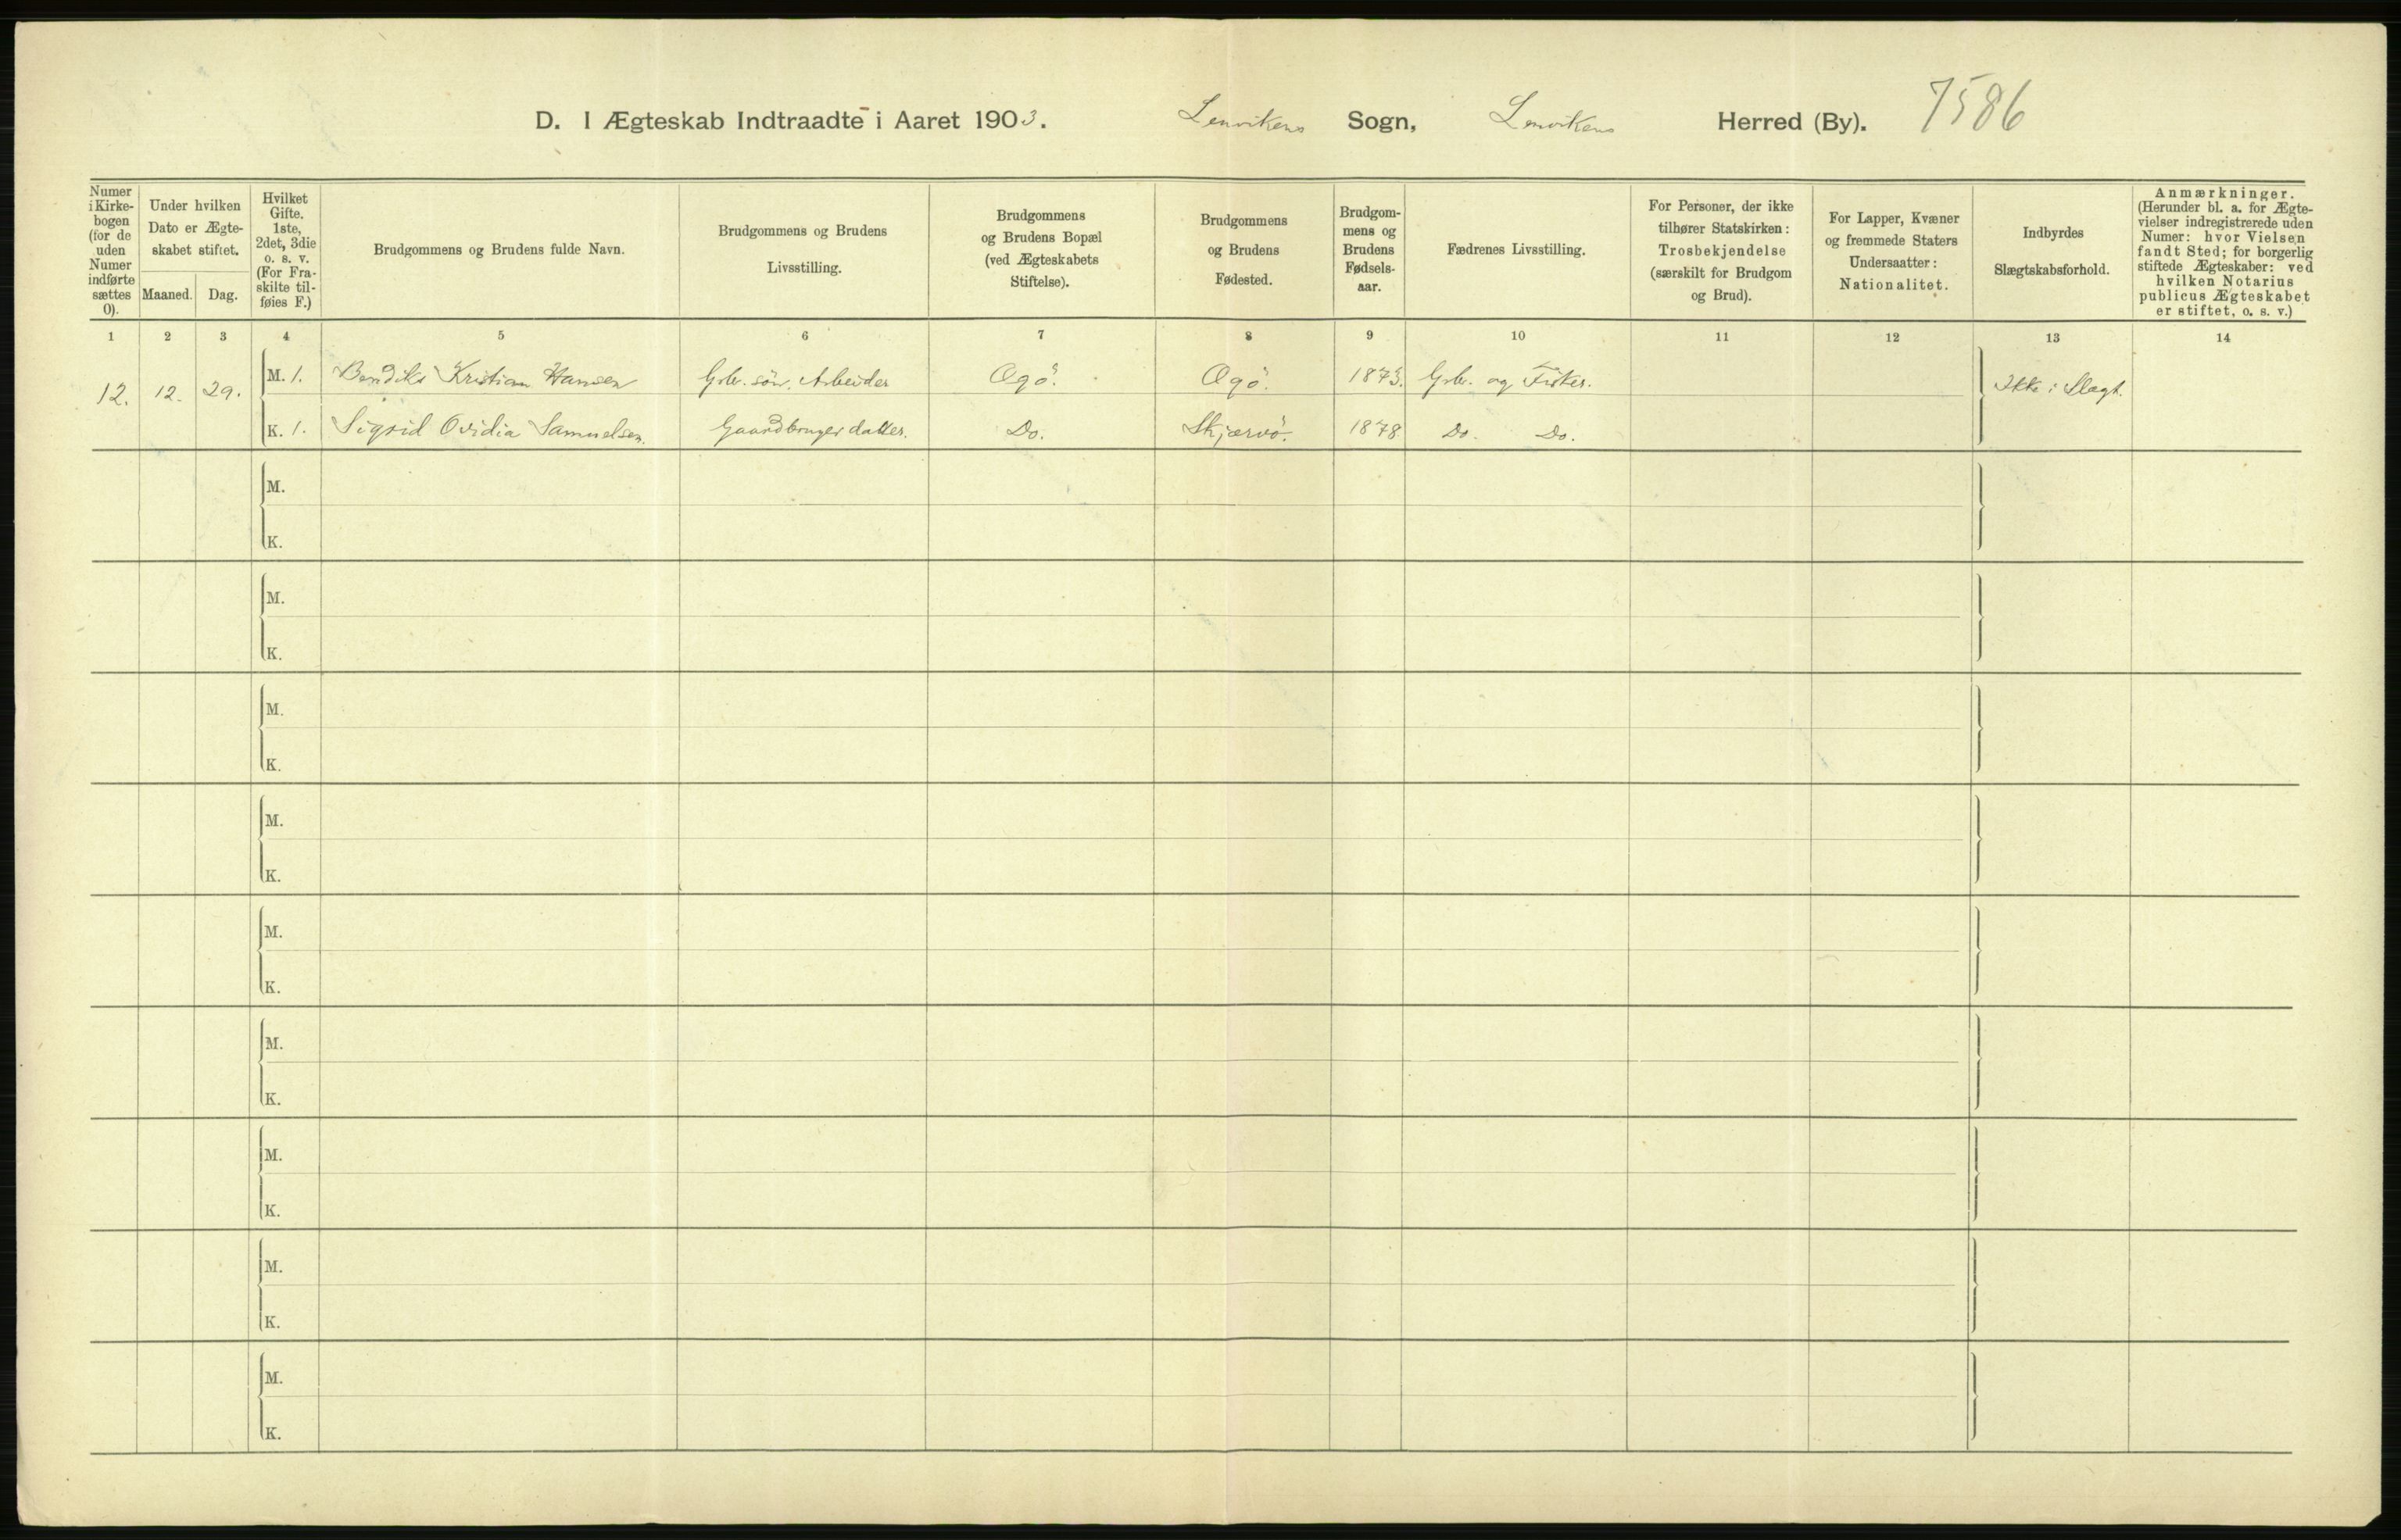 D. I Ægteskab Indtraadte i Aaret 1903. Lenvikens Sogn, Lenvikens Herred (By). 7586
Numer i Kirke-bogen (for de uden Numer indførte sættes 0).
Under hvilken Dato er Ægte-skabet stiftet.
Maaned. Dag.
Hvilket Gifte. 1ste, 2det, 3die o. s. v. (For Fra-skilte til-føies F.)
Brudgommens og Brudens fulde Navn.
Brudgommens og Brudens Livsstilling.
Brudgommens og Brudens Bopæl (ved Ægteskabets Stiftelse).
Brudgommens og Brudens Fødested.
Brudgom-mens og Brudens Fødsels-aar.
Fædrenes Livsstilling.
For Personer, der ikke tilhører Statskirken: Trosbekjendelse (særskilt for Brudgom og Brud).
For Lapper, Kvæner og fremmede Staters Undersaatter: Nationalitet.
Indbyrdes Slægtskabsforhold.
Anmærkninger. (Herunder bl. a. for Ægte-vielser indregistrerede uden Numer: hvor Vielsen fandt Sted; for borgerlig stiftede Ægteskaber: ved hvilken Notarius publicus Ægteskabet er stiftet, o. s. v.)
1 2 3 4 5 6 7 8 9 10 11 12 13 14
12. 12. 29. M. 1. Bendiks Kristian Hansen Grbr. sön, Arbeider Ogö. Ogö. 1873. Grbr. og Fisker. Ikke i Slægt.
K. 1. Sigrid Ovidia Samuelsen. Gaardbruger datter. Do. Skjærvö. 1878 Do. Do.
M.
K.
M.
K.
M.
K.
M.
K.
M.
K.
M.
K.
M.
K.
M.
K.
M.
K.